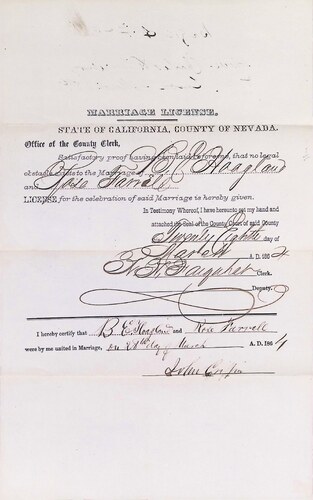 MARRIAGE LICENSE.
STATE OF CALIFORNIA, COUNTY OF NEVADA.
Office of the County Clerk,
Satisfactory proof having been laid before me, that no legal
obstacle exists to the Marriage of B. E. Hoagland
and Rosa Farrell
LICENSE for the celebration of said Marriage is hereby given.
In Testimony Whereof, I have hereunto set my hand and
attached the Seal of the County Court of said County
Twenty Eighth day of
March A. D. 1864
Farquhar Clerk.
Deputy
I hereby certify that B. E. Hoagland and Rose
were by me united in Marriage, on 28th day of March A. D. 1864
John